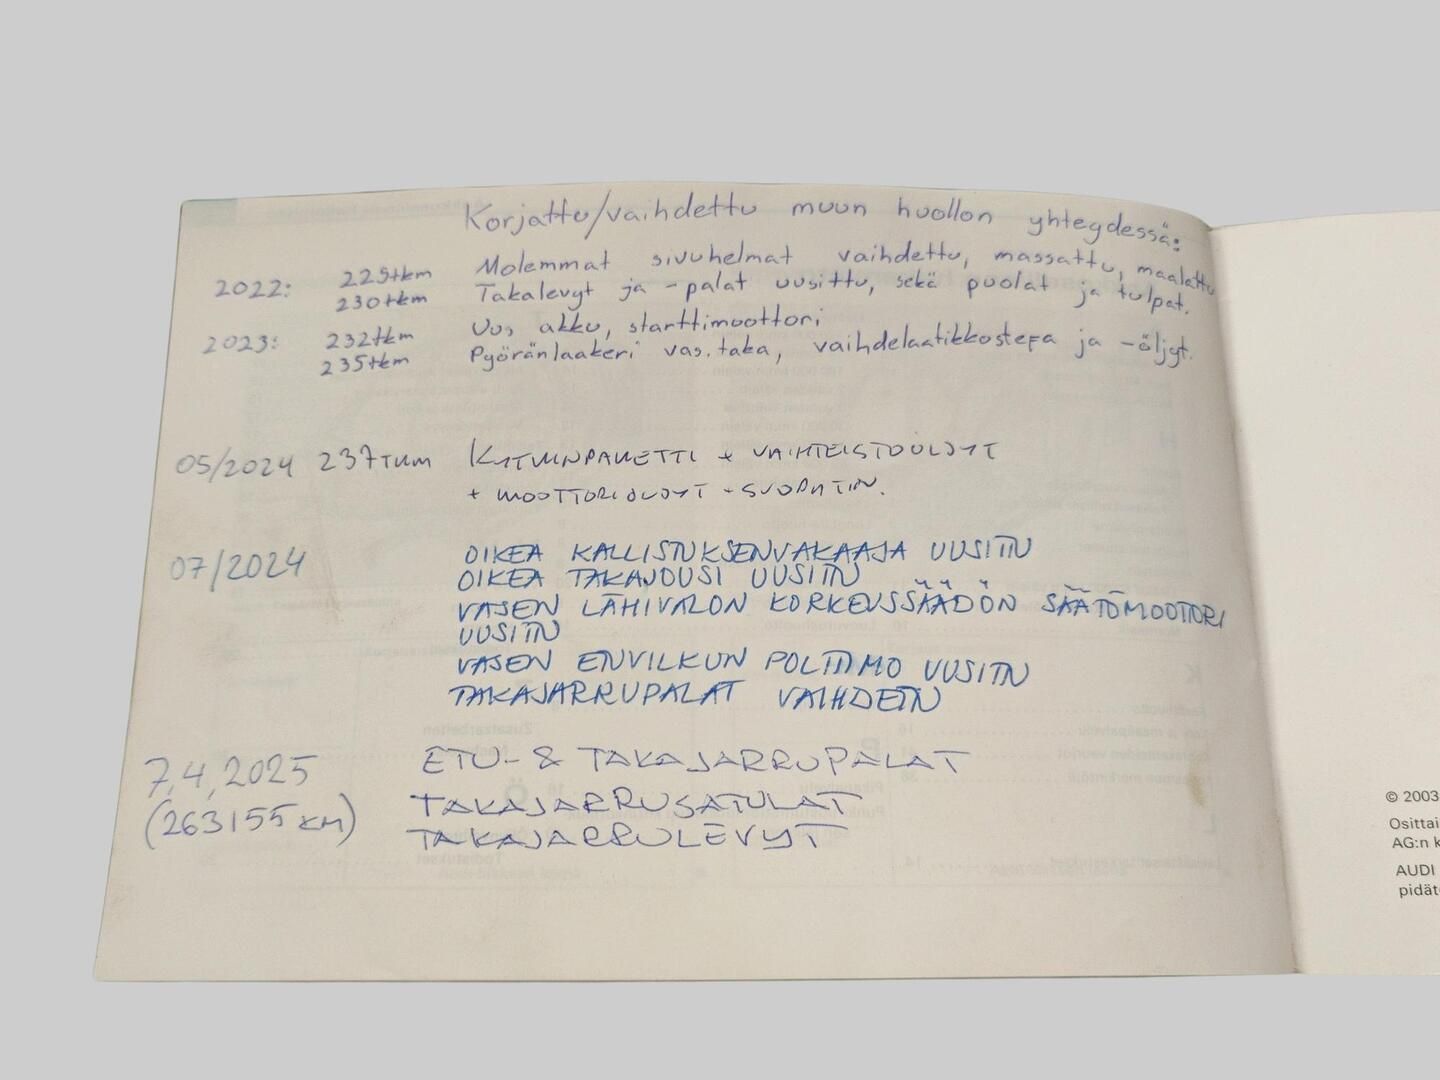 Korjattu/vaihdettu muun huollon yhteydessä:
2022: 225tkm Molemmat sivuhelmat vaihdettu, massattu, maalattu
230tkm Takalevyt ja -palat uusittu, sekä puolat ja tulpat.
2023: 232tkm Uus akku, starttimoottori
235tkm Pyöränlaakeri vas.taka, vaihdelaatikkostefa ja -öljyt.
05/2024 237TKM KYTKINPAKETTI + VAIHTEISTOÖLJYT
+ MOOTTORIÖLJYT + SUODATIN.
07/2024 OIKEA KALLISTUKSENVAKAAJA UUSITTU
OIKEA TAKAJOUSI UUSITTU
VASEN LÄHIVALON KORKEUSSÄÄDÖN SÄÄTÖMOOTTORI
UUSITTU
VASEN ETUVILKUN POLTTIMO UUSITTU
TAKAJARRUPALAT VAIHDETTU
7,4,2025 ETU- & TAKAJARRUPALAT
(263155 KM) TAKAJARRUSATULAT
TAKAJARRULEVYT
© 2003
Osittai
AG:n k
AUDI
pidät